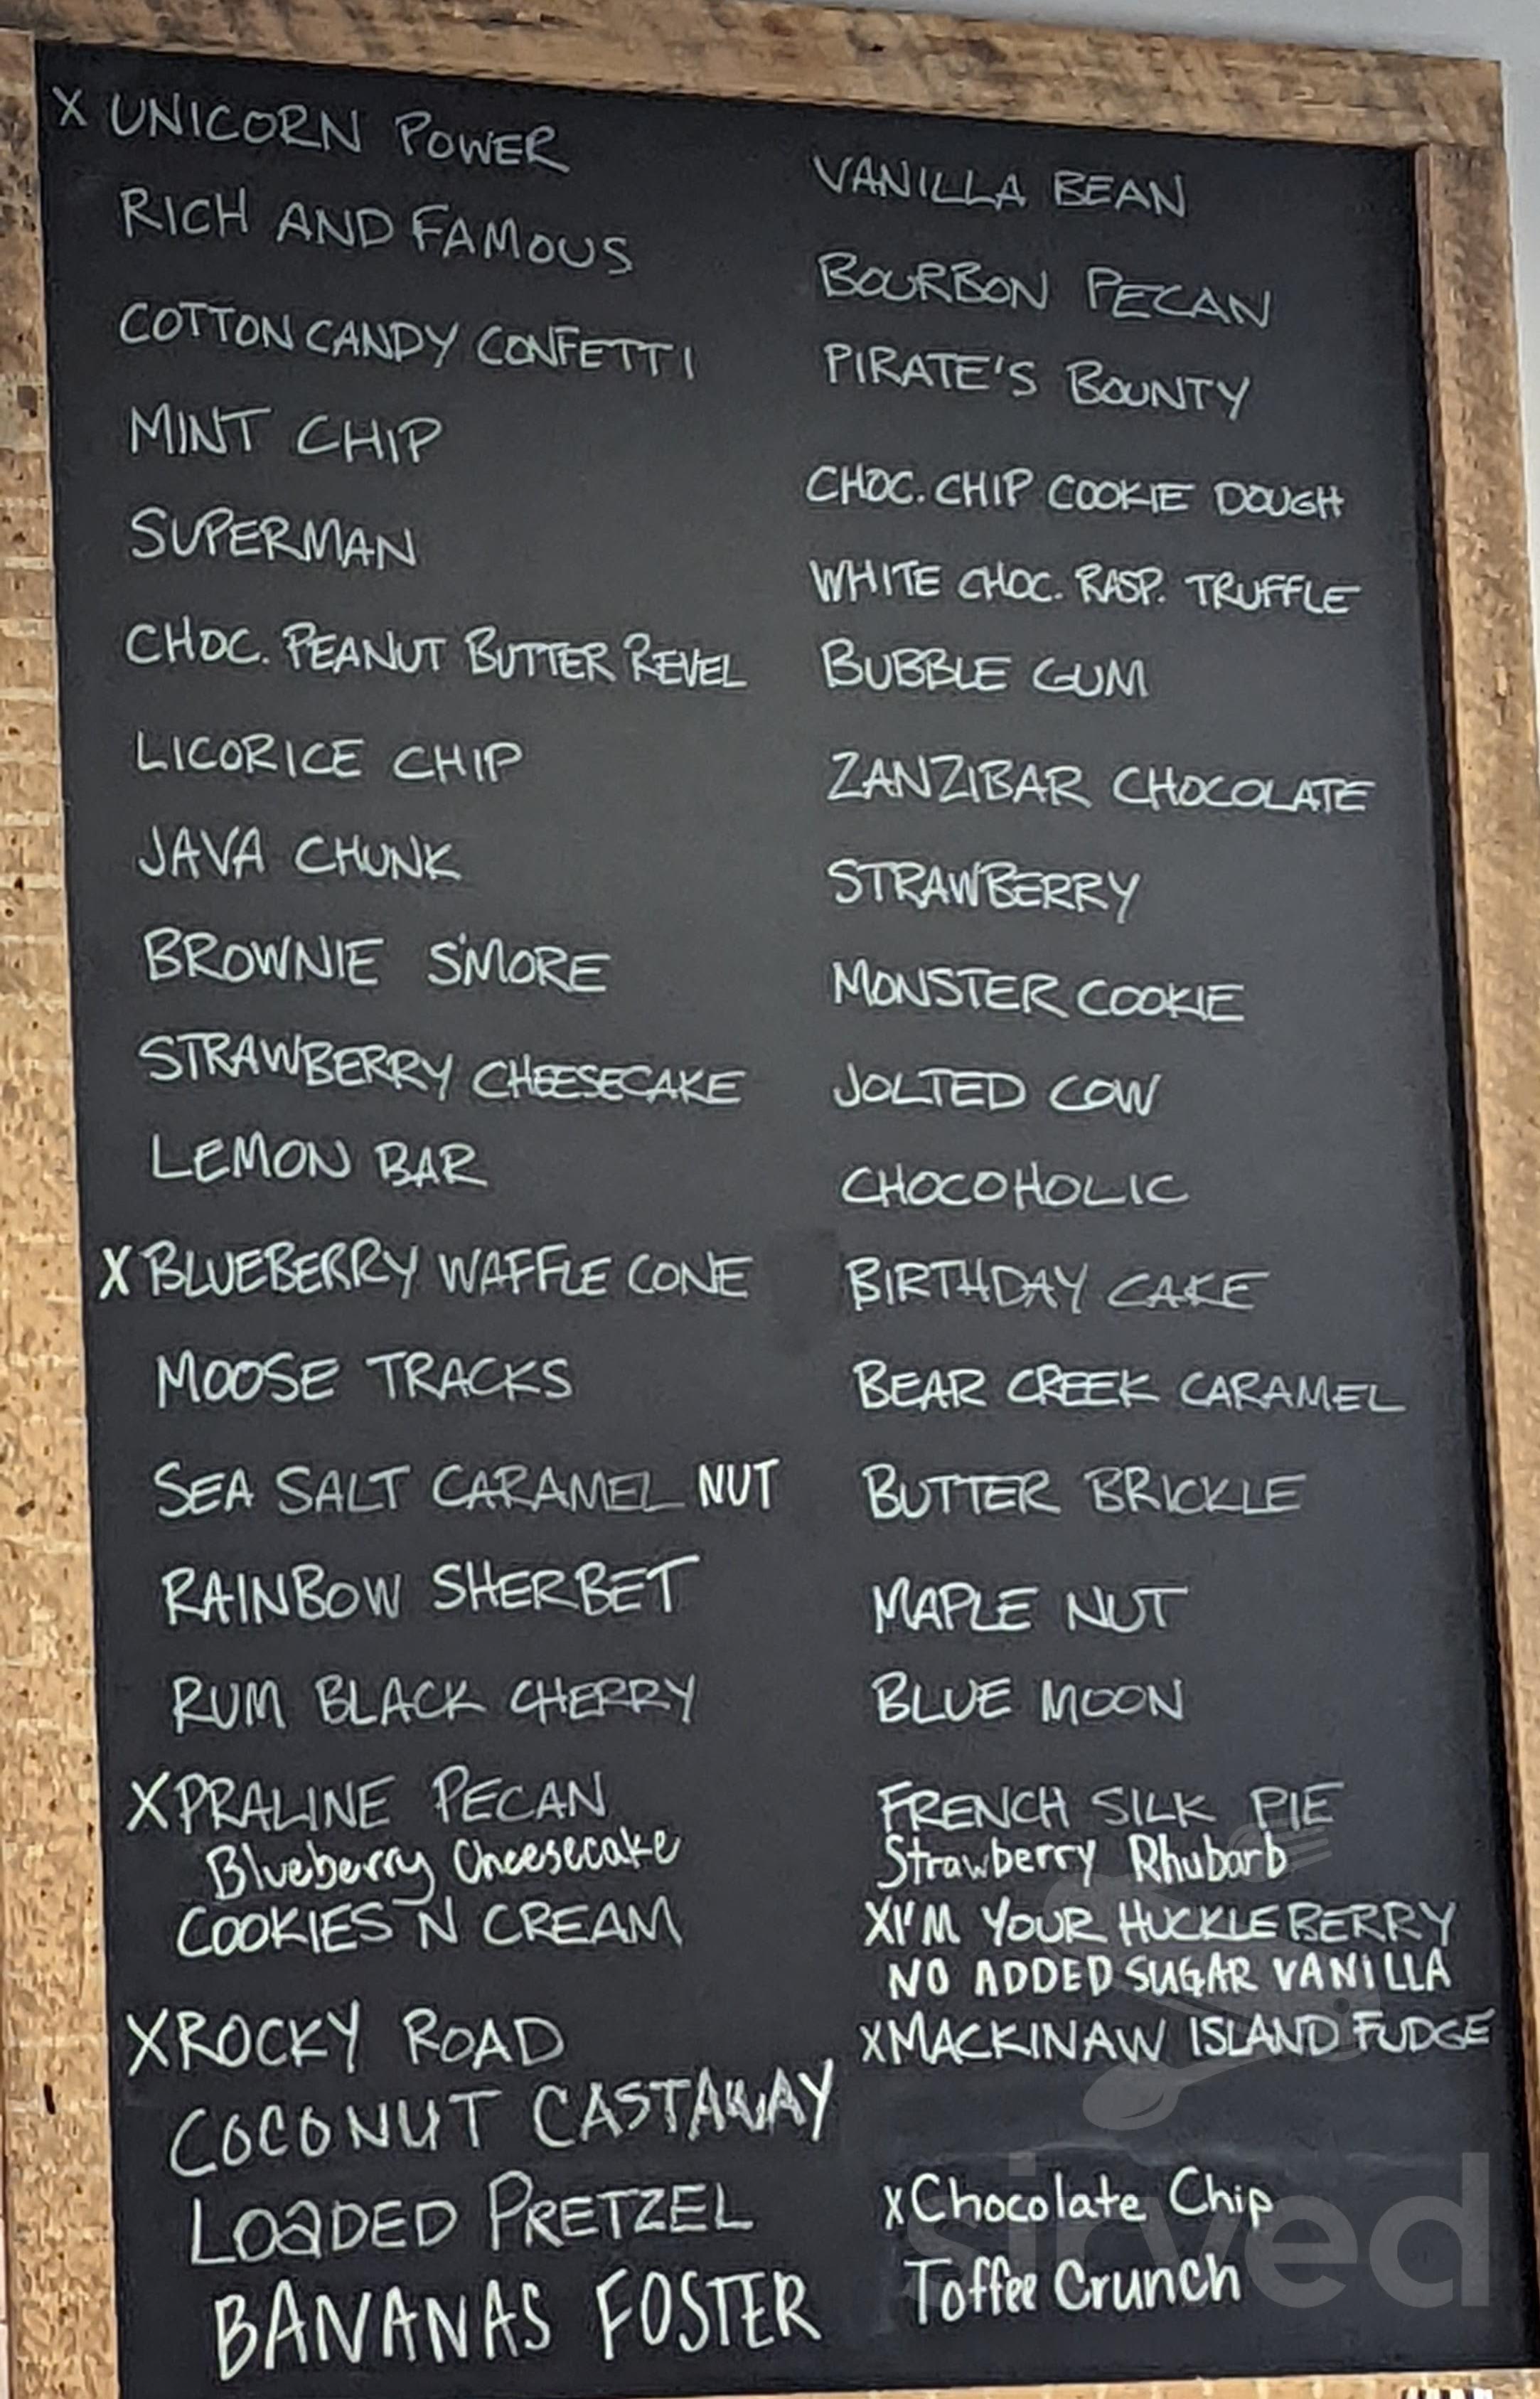 X UNICORN POWER
RICH AND FAMOUS
COTTON CANDY CONFETTI
MINT CHIP
SUPERMAN
CHOC. PEANUT BUTTER REVEL
LICORICE CHIP
JAVA CHUNK
BROWNIE S'MORE
STRAWBERRY CHEESECAKE
LEMON BAR
X BLUEBERRY WAFFLE CONE
MOOSE TRACKS
SEA SALT CARAMEL NUT
RAINBOW SHERBET
RUM BLACK CHERRY
X PRALINE PECAN
Blueberry Cheesecake
COOKIES 'N CREAM
X ROCKY ROAD
COCONUT CASTAWAY
LOADED PRETZEL
BANANAS FOSTER
VANILLA BEAN
BOURBON PECAN
PIRATE'S BOUNTY
CHOC. CHIP COOKIE DOUGH
WHITE CHOC. RASP. TRUFFLE
BUBBLE GUM
ZANZIBAR CHOCOLATE
STRAWBERRY
MONSTER COOKIE
JOLTED COW
CHOCOHOLIC
BIRTHDAY CAKE
BEAR CREEK CARAMEL
BUTTER BRICKLE
MAPLE NUT
BLUE MOON
FRENCH SILK PIE
Strawberry Rhubarb
X I'M YOUR HUCKLEBERRY
NO ADDED SUGAR VANILLA
X MACKINAW ISLAND FUDGE
X Chocolate Chip
Toffee Crunch
sirved